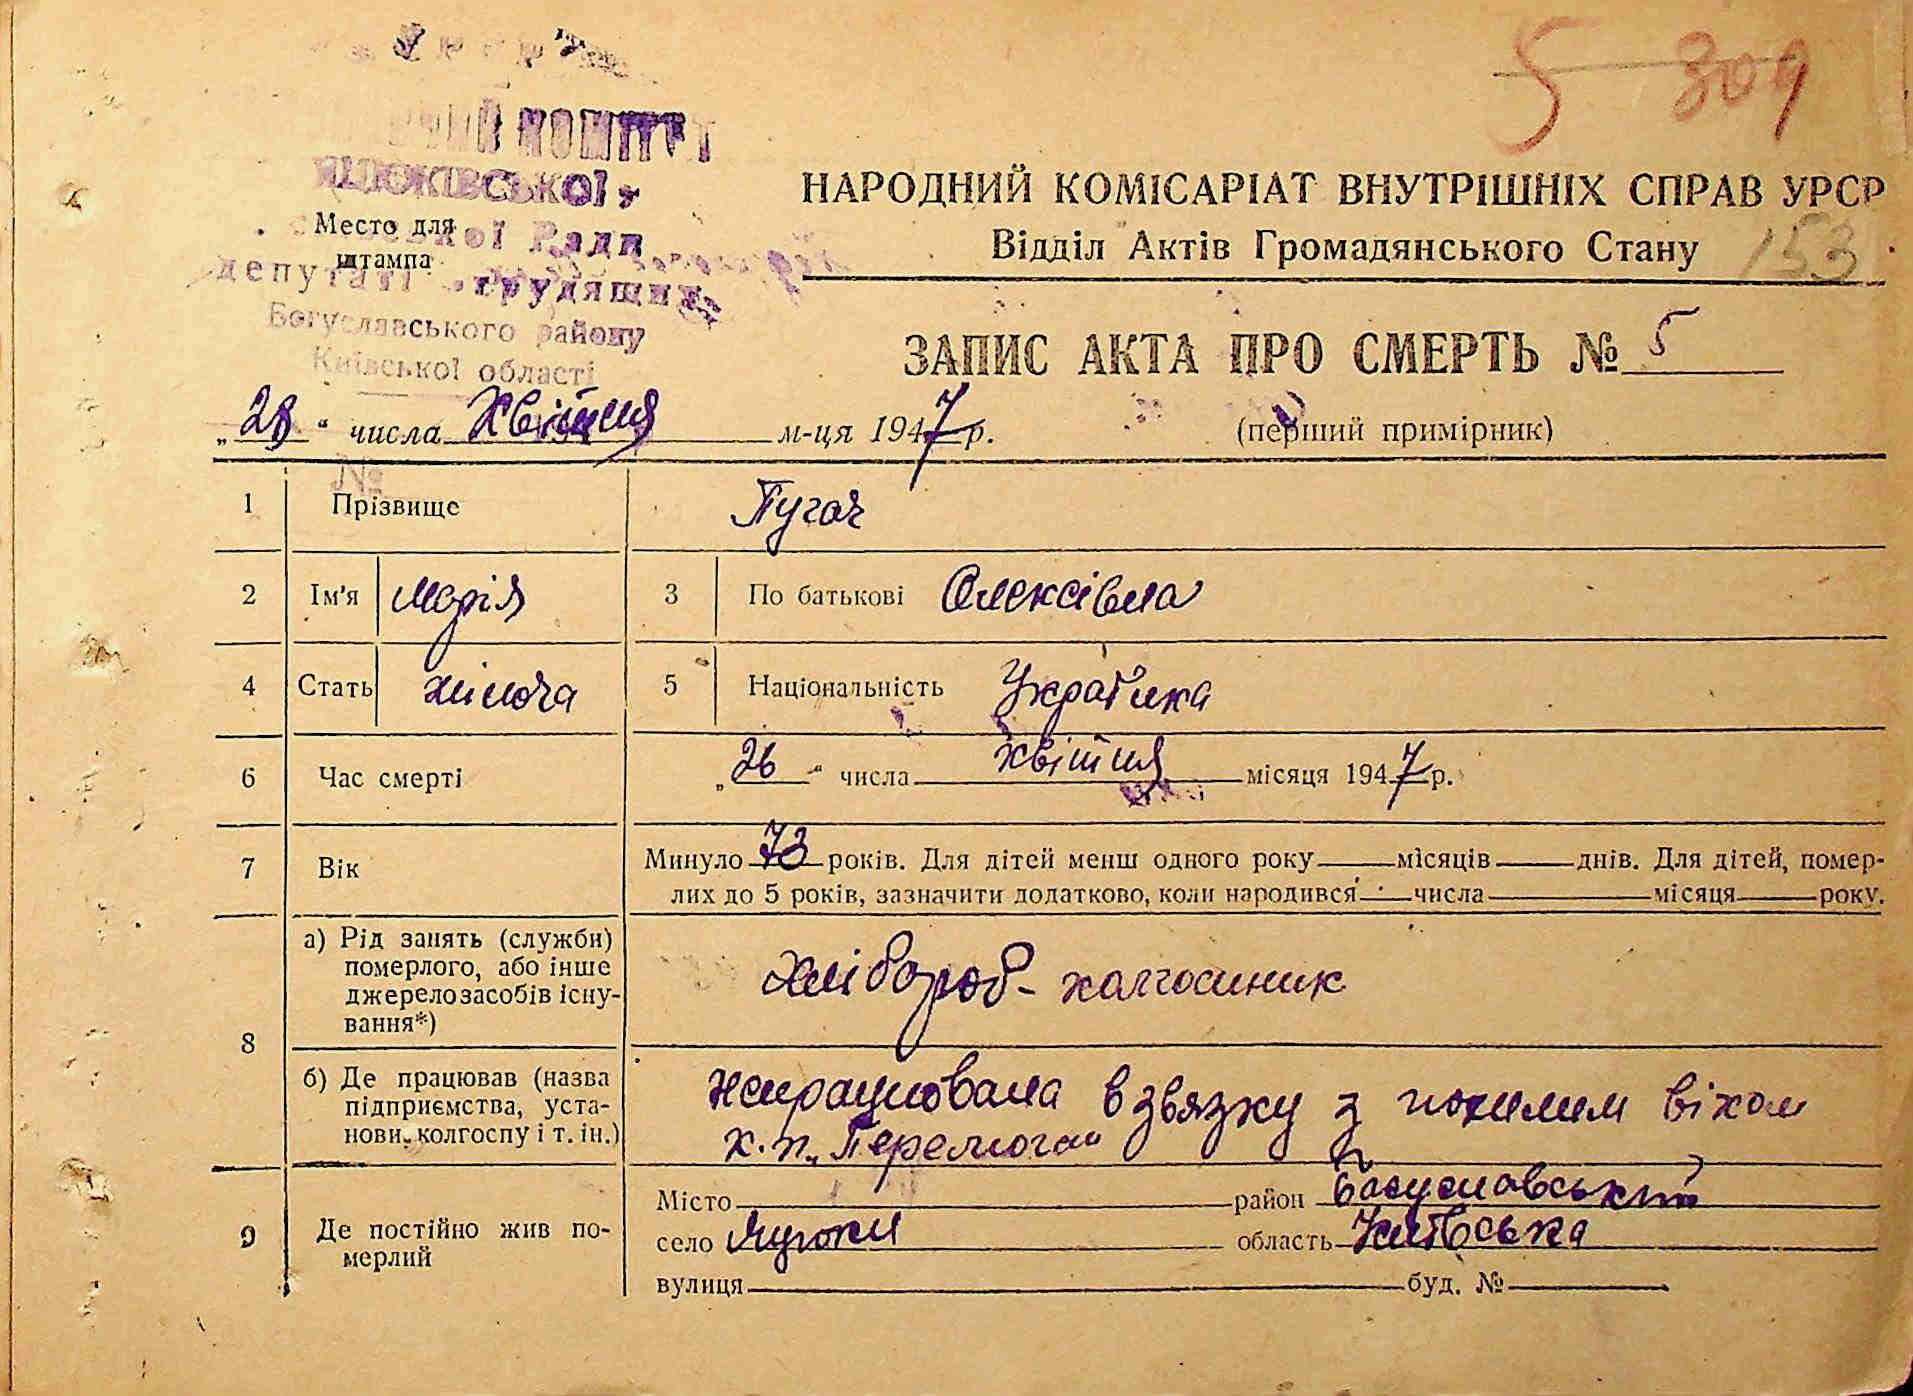 5 309
КОМІТЕТ
Місто для
штампа
Ради
депутатів трудящих
Богуславського району
Київської області
НАРОДНИЙ КОМІСАРІАТ ВНУТРІШНІХ СПРАВ УРСР
Відділ Актів Громадянського Стану 153
ЗАПИС АКТА ПРО СМЕРТЬ № 5
„28“ числа Квітня м-ця 1947 р. (перший примірник)
№
1 Прізвище Пугач
2 Ім'я Марія 3 По батькові Олексівна
4 Стать жіноча 5 Національність Українка
6 Час смерті „26“ числа квітня місяця 1947 р.
7 Вік Минуло 73 років. Для дітей менш одного року місяців днів. Для дітей, помер-
лих до 5 років, зазначити додатково, коли народився числа місяця року.
8 а) Рід занять (служби)
померлого, або інше
джерело засобів існу-
вання*)
Хлібороб - колгоспник
б) Де працював (назва
підприємства, уста-
нови, колгоспу і т. ін.)
непрацювала в звязку з похилим віком
к.п. „Перемога“
9 Де постійно жив по-
мерлий
Місто район Богуславський
село область Київська
вулиця буд. №